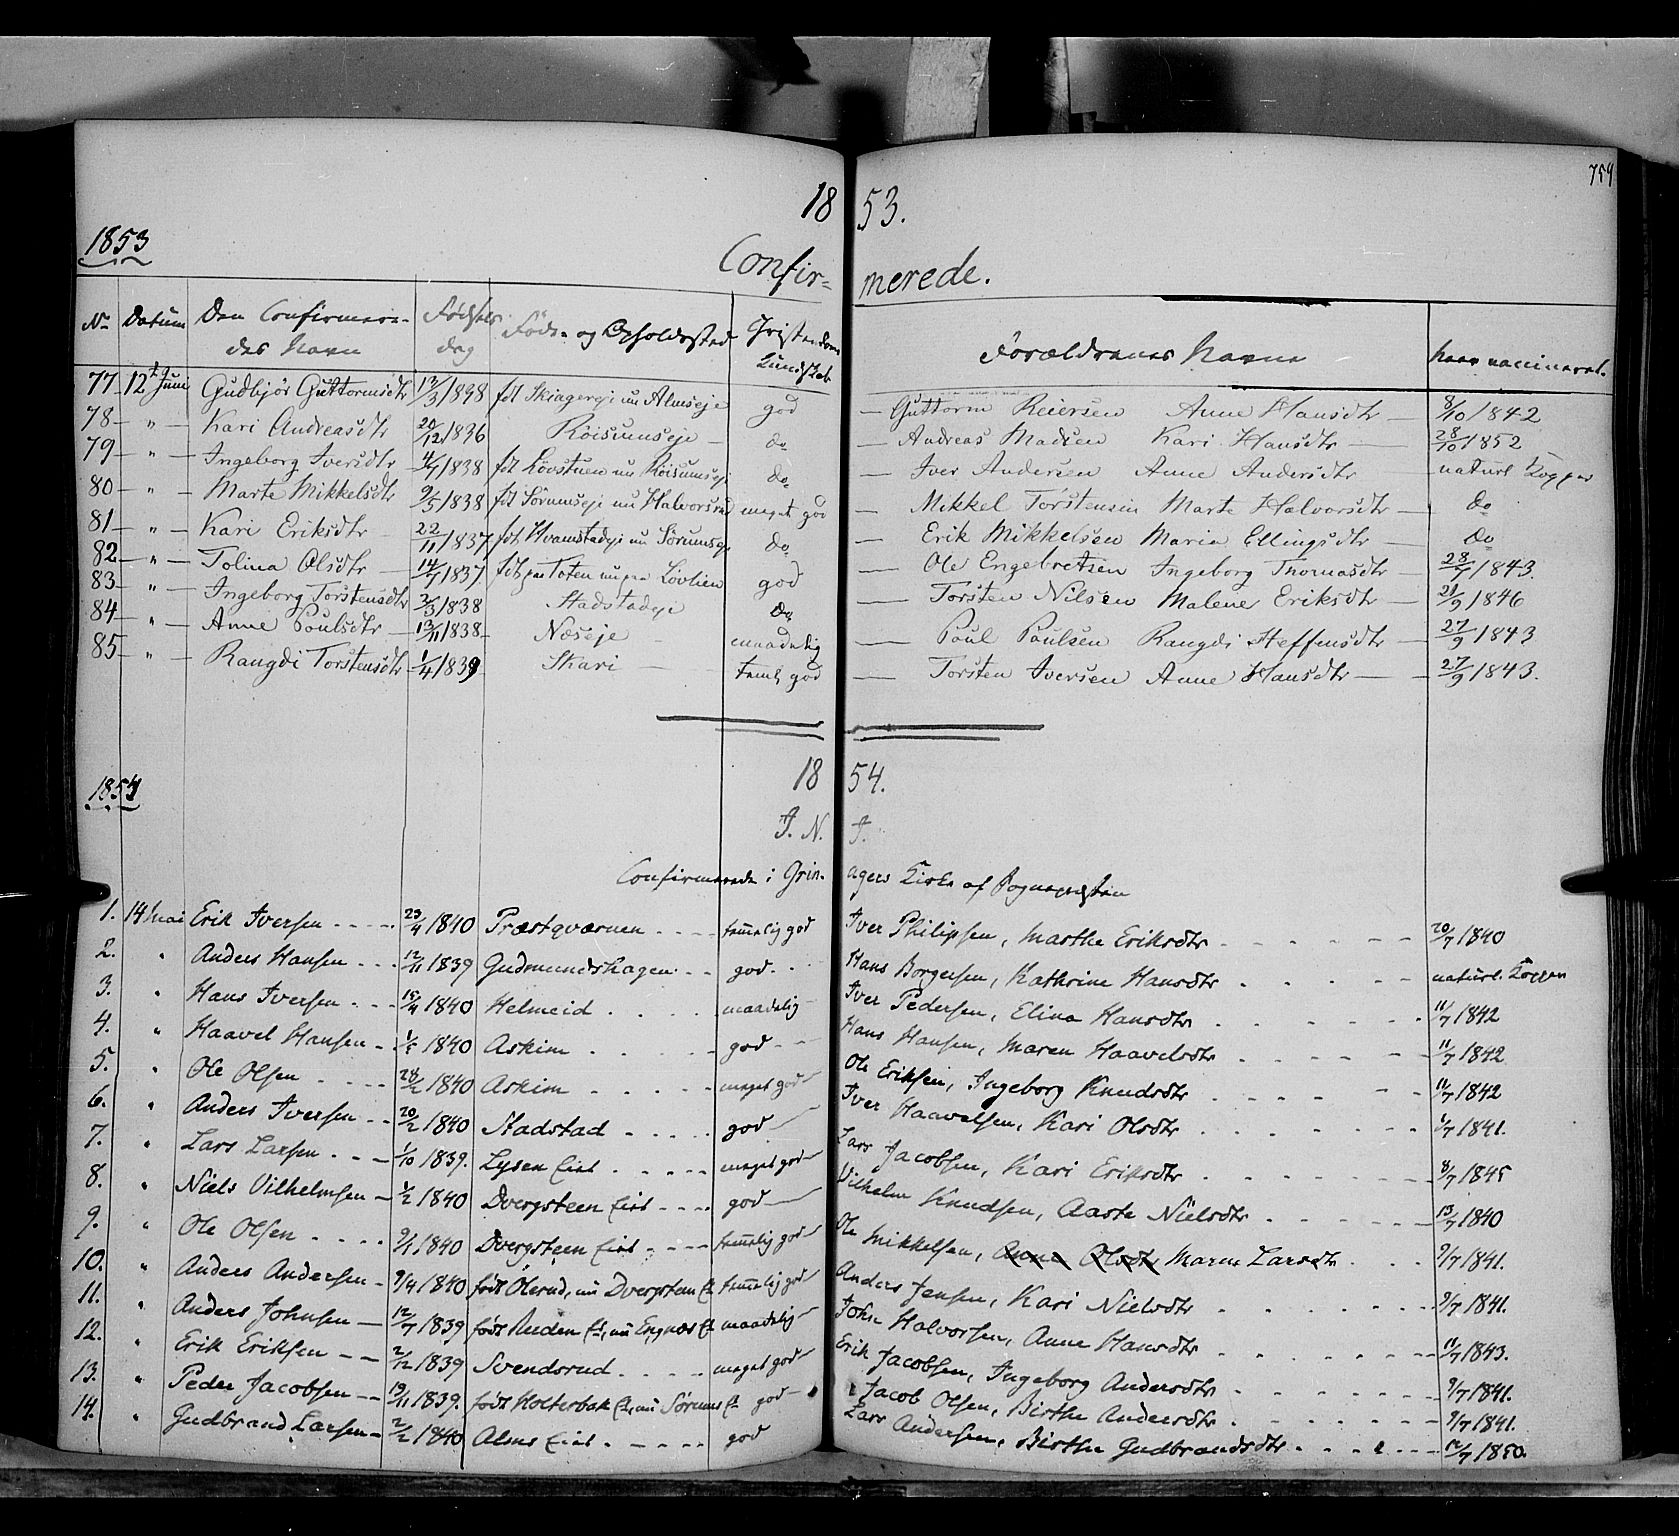 754
18 53.
1853
Confir- merede.
No Datum Den Confirmere- Fødsels Føde- og Opholdssted Christendoms Forældrenes Navne naar vaccineret.
des Navn dag Kundskab
77 12te Juni Gudbjør Guttormsdtr 13/3 1838 fdt Skiagereje nu Almseje god — Guttorm Reiersen Anne Hansdtr — 8/10 1842
78 — " — Kari Andreasdtr 20/12 1836 Röisumseje — do — Andreas Madsen Kari Hansdtr — 28/10 1852
79 — " — Ingeborg Iversdtr 4/7 1838 fdt Lövstuen nu Röisumseje do — Iver Andersen Anne Andersdtr — naturl Kopper
80 — " — Marte Mikkelsdtr 9/5 1838 fdt Sörumseje nu Halvorsrud meget god — Mikkel Torstensen Marte Halvorsdtr — do
81 — " — Kari Eriksdtr 22/11 1837 fdt Hvamstadeje nu Sörumseje do — Erik Mikkelsen Maria Ellingsdtr — do
82 — " — Tolina Olsdtr 14/7 1837 fdt paa Toten nu paa Lövlien god — Ole Engebretsen Ingeborg Thomasdtr — 28/7 1843.
83 — " — Ingeborg Torstensdtr 2/3 1838 Stadstadeje do — Torsten Nilsen Malene Eriksdtr — 21/9 1846
84 — " — Anne Poulsdtr — 13/11 1838 — Næseje — maadelig — Poul Poulsen Rangdi Steffensdtr — 27/9 1843
85 — " — Rangdi Torstensdtr — 1/4 1839 — Skari — teml. god — Torsten Iversen Anne Hansdtr — 27/9 1843.
1854 18 54.
J. N. J.
Confirmerede i Grin- agers Kirke af Sognepræsten
1. 14 Mai Erik Iversen . . . . 23/4 1840 Præstqværnen . . . . temmelig god Iver Philipsen, Marthe Eriksdtr . . . 20/7 1840
2. " Anders Hansen . . . 12/11 1839 Gudmundshagen . . god . . Hans Borgersen, Kathrine Hansdtr . . . naturl. Kopper
3. " Hans Iversen . . . 15/4 1840 Helmeid . . . . maadelig Iver Pedersen, Elina Hansdtr . . . 11/7 1842
4. " Haavel Hansen . . 1/5 1840 Askim . . . . god — Hans Hansen, Maren Haavelsdtr . . . 11/7 1842
5. " Ole Olsen . . . . 28/2 1840 Askim . . . . meget god Ole Eriksen, Ingeborg Knudsdtr . . . 11/7 1842
6. " Anders Iversen . . 20/2 1840 Stadstad . . . . god — Iver Haavelsen, Kari Olsdtr . . . 1/7 1841.
7. " Lars Larsen . . . 1/10 1839. Lysen Eiet . . . . meget god Lars Jacobsen, Kari Eriksdtr . . . 8/7 1845
8. " Niels Vilhelmsen — 1/2 1840 Dvergsteen Eiet . . . god — Vilhelm Knudsen, Aaste Nielsdtr . . . 13/7 1840
9. " Ole Olsen . . . . 9/1 1840 Dvergsteen Eiet . . . temmelig god Ole Mikkelsen, Anne Olsdtr Maren Larsdtr . . . 9/7 1841.
10. " Anders Andersen — 9/4 1840 født Ølerud, nu Dvergsteen Et temmelig god Anders Jensen, Kari Nielsdtr . . . 9/7 1841.
11. " Anders Johnsen — 12/7 1839 født Ruden Et, nu Engnæs Et maadelig Johs Halvorsen, Anne Hansdtr . . . 11/7 1843.
12. " Erik Eriksen . . 2/12 1839 Svendsrud . . . . meget god Erik Jacobsen, Ingeborg Andersdtr . . . 9/7 1841.
13. " Peder Jacobsen . . 19/11 1839. født Holterbak Et, nu Sørums Et god — Jacob Olsen, Birthe Andersdtr . . . 9/7 1841.
14. " Gudbrand Larsen — 2/2 1840 Alms Eiet . . . . god Lars Andersen, Birthe Gudbrandsdtr . . . 12/7 1850.